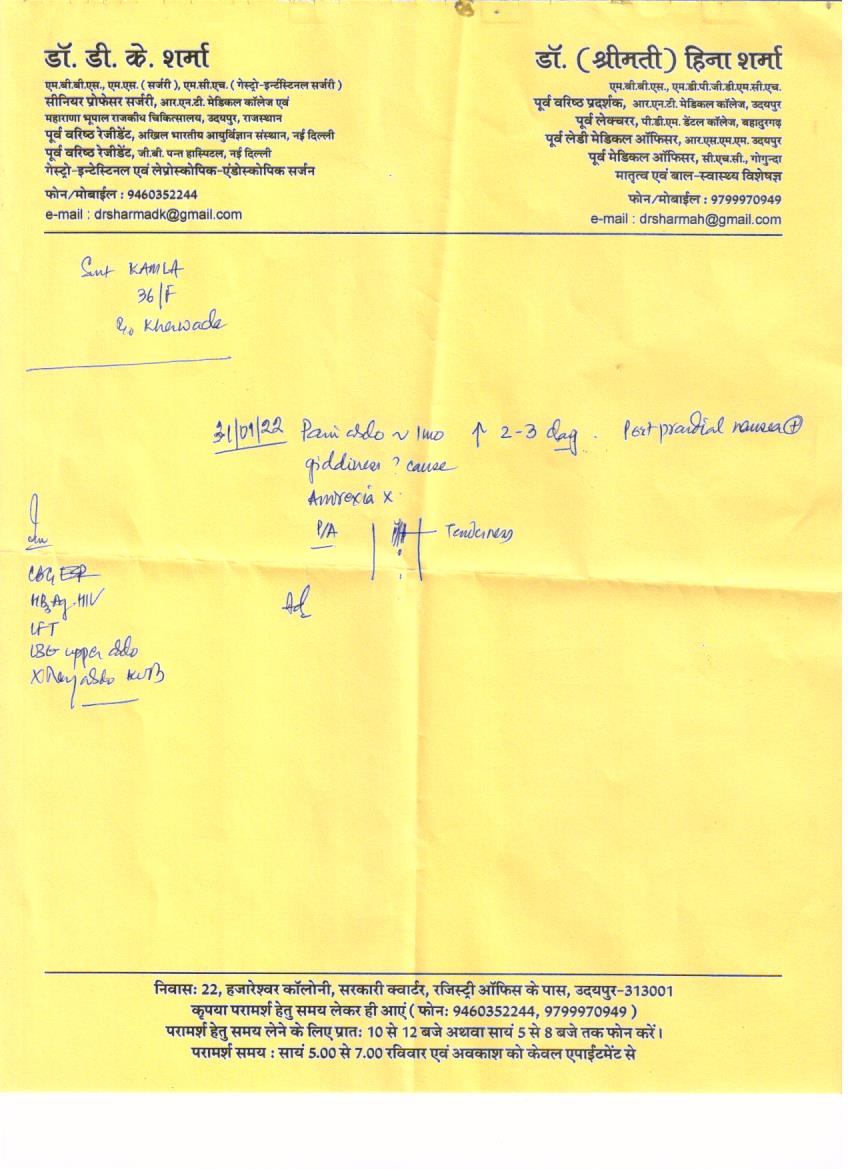 डॉ. डी. के. शर्मा
एम.बी.बी.एस., एम.एस. ( सर्जरी ), एम.सी.एच. ( गेस्ट्रो-इन्टेंस्टिनल सर्जरी )
सीनियर प्रोफेसर सर्जरी, आर.एन.टी. मेडिकल कॉलेज एवं
महाराणा भूपाल राजकीय चिकित्सालय, उदयपुर, राजस्थान
पूर्व वरिष्ठ रेजीडेंट, अखिल भारतीय आयुर्विज्ञान संस्थान, नई दिल्ली
पूर्व वरिष्ठ रेजीडेंट, जी.बी. पन्त हास्पिटल, नई दिल्ली
गेस्ट्रो-इन्टेस्टिनल एवं लेप्रोस्कोपिक-एंडोस्कोपिक सर्जन
फोन/मोबाईल : 9460352244
e-mail : drsharmadk@gmail.com
डॉ. ( श्रीमती ) हिना शर्मा
एम.बी.बी.एस., एम.डी.पी.जी.डी.एम.सी.एच.
पूर्व वरिष्ठ प्रदर्शक, आर.एन.टी. मेडिकल कॉलेज, उदयपुर
पूर्व लेक्चरर, पी.डी.एम. डेंटल कॉलेज, बहादुरगढ़
पूर्व लेडी मेडिकल ऑफिसर, आर.एस.एम.एम. उदयपुर
पूर्व मेडिकल ऑफिसर, सी.एच.सी., गोगुन्दा
मातृत्व एवं बाल-स्वास्थ्य विशेषज्ञ
फोन/मोबाईल : 9799970949
e-mail : drsharmah@gmail.com
Smt KAMLA
36/F
R/o Kherwada
31/01/22 Pain abdo ~ 1mo ↑ 2-3 day . Post prandial nausea ⊕
giddiness ? cause
Anorexia X
P/A Tenderness
Adv
Inv
CBC, ESR
HBsAg. HIV
LFT
USG upper abdo
X Ray abdo KUB
निवास: 22, हजारेश्वर कॉलोनी, सरकारी क्वार्टर, रजिस्ट्री ऑफिस के पास, उदयपुर-313001
कृपया परामर्श हेतु समय लेकर ही आएं ( फोन: 9460352244, 9799970949 )
परामर्श हेतु समय लेने के लिए प्रात: 10 से 12 बजे अथवा सायं 5 से 8 बजे तक फोन करें।
परामर्श समय : सायं 5.00 से 7.00 रविवार एवं अवकाश को केवल एपाईंटमेंट से